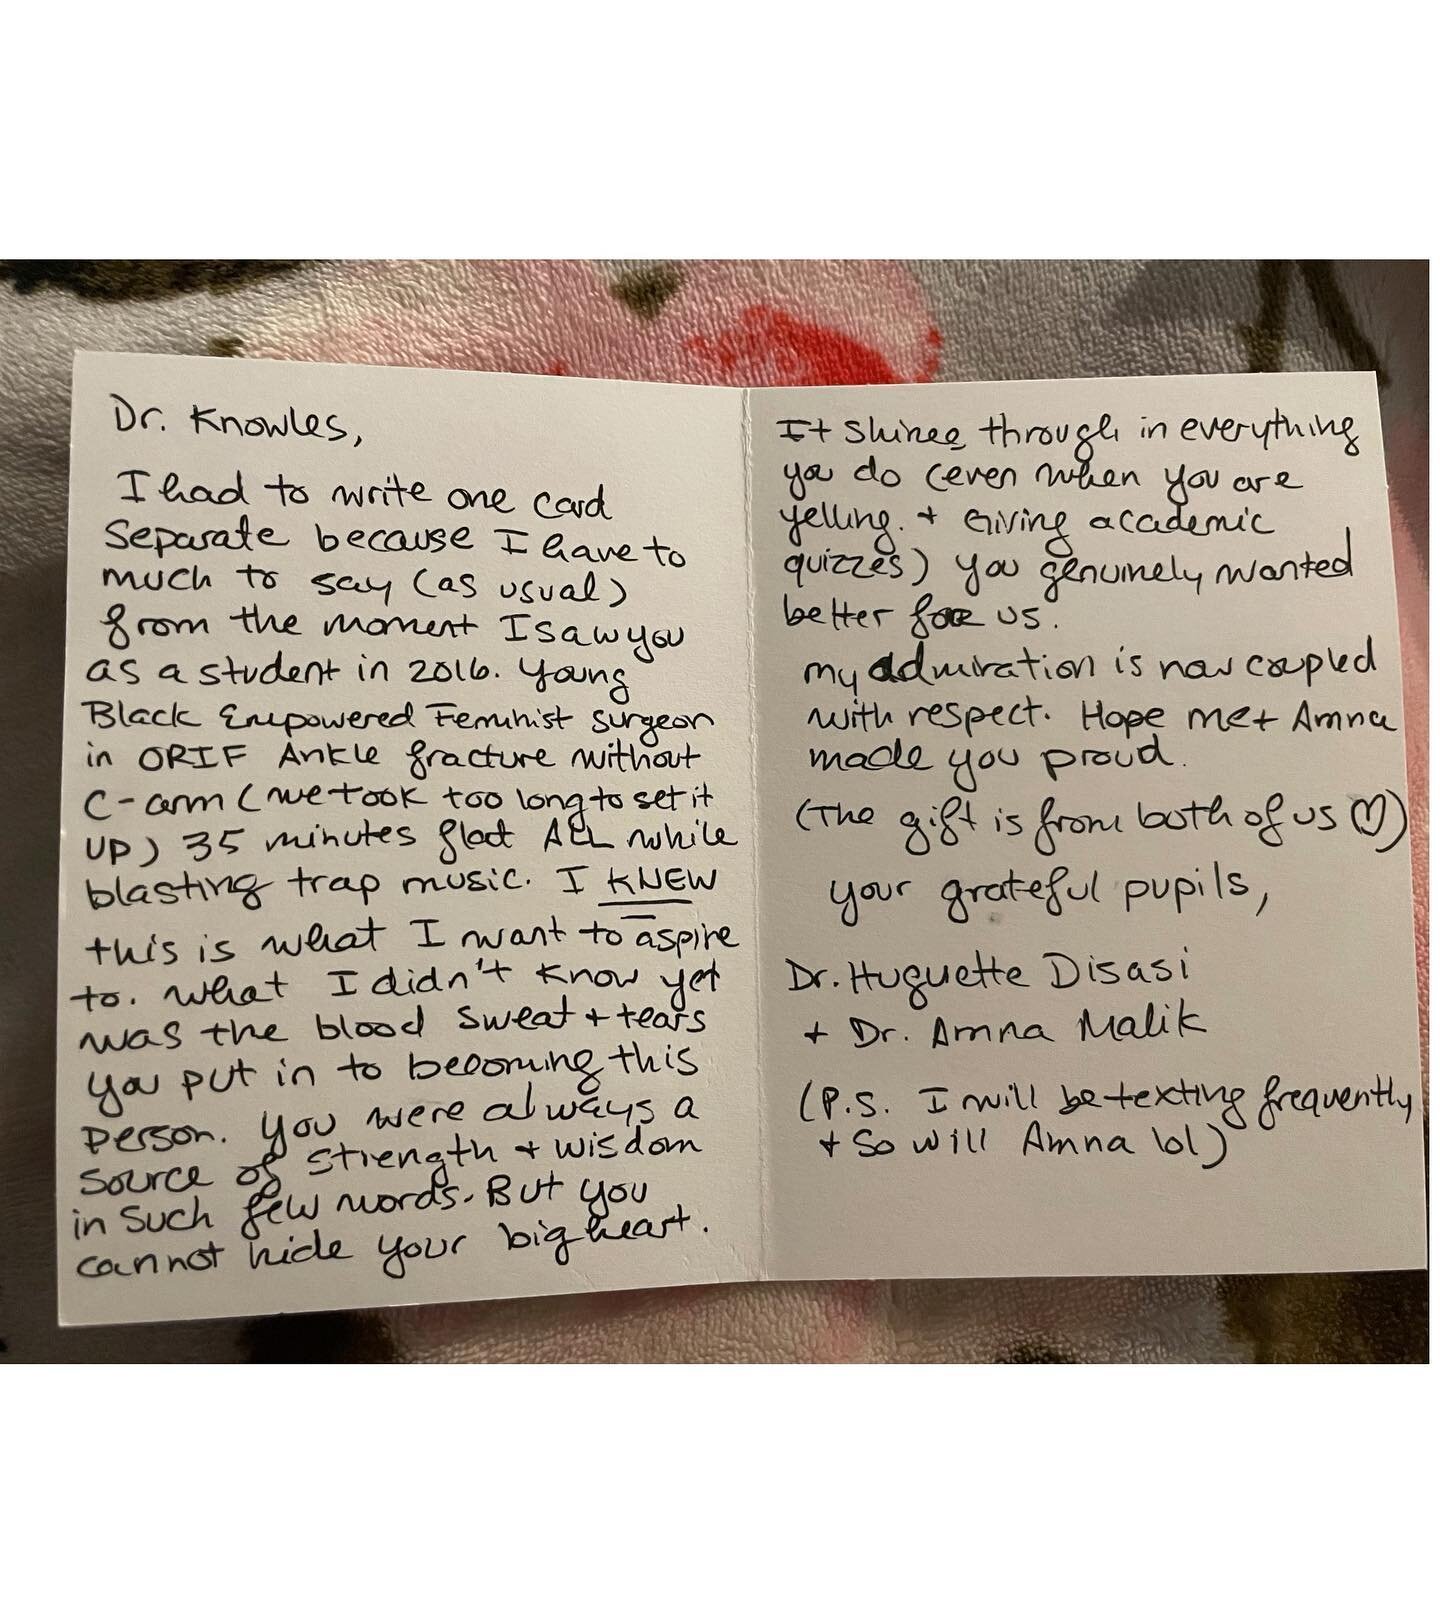 Dr. Knowles,
I had to write one card
separate because I have to
much to say (as usual)
from the moment I saw you
as a student in 2016. Young
Black Empowered Feminist surgeon
in ORIF Ankle fracture without
C-arm (we took too long to set it
up) 35 minutes flat ALL while
blasting trap music. I KNEW
this is what I want to aspire
to. what I didn't know yet
was the blood sweat + tears
you put in to becoming this
person. you were always a
source of strength + wisdom
in such few words. But you
cannot hide your big heart.
It shines through in everything
you do (even when you are
yelling. + Giving academic
quizzes) you genuinely wanted
better for us.
my admiration is now coupled
with respect. Hope me + Amna
made you proud.
(The gift is from both of us ♡)
your grateful pupils,
Dr. Huguette Disasi
+ Dr. Amna Malik
(P.S. I will be texting frequently
+ so will Amna lol)